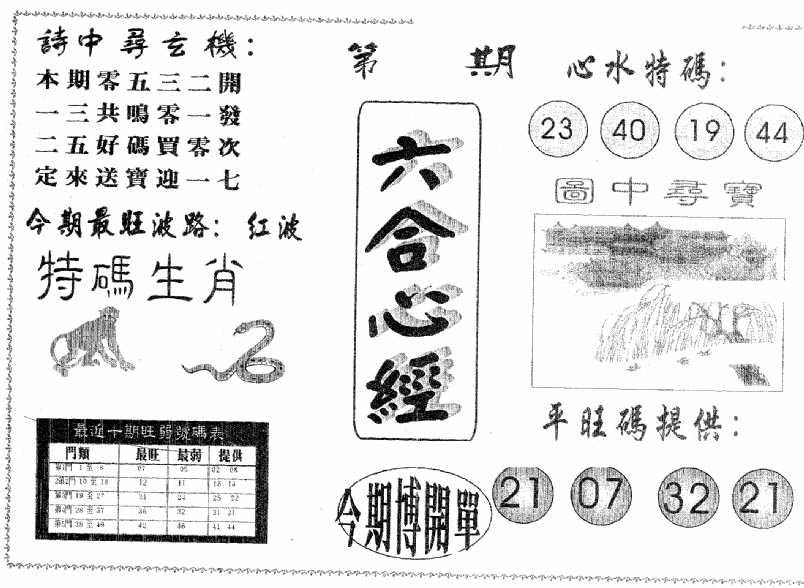 詩中尋玄機：
本期零五三二開
一三共鳴零一發
二五好碼買零次
定來送寶迎一七
今期最旺波路：紅波
特碼生肖
最近十期旺弱號碼表
門類 最旺 最弱 提供
第1門 1 至 9 07 05 02 08
第2門 10 至 18 12 11
第3門 19 至 27 24 25 22
第4門 28 至 37 36 32 31 21
第5門 38 至 49 42 46 41 44
第 期
六合心經
今期博開單
心水特碼：
23 40 19 44
圖中尋寶
平旺碼提供：
21 07 32 21